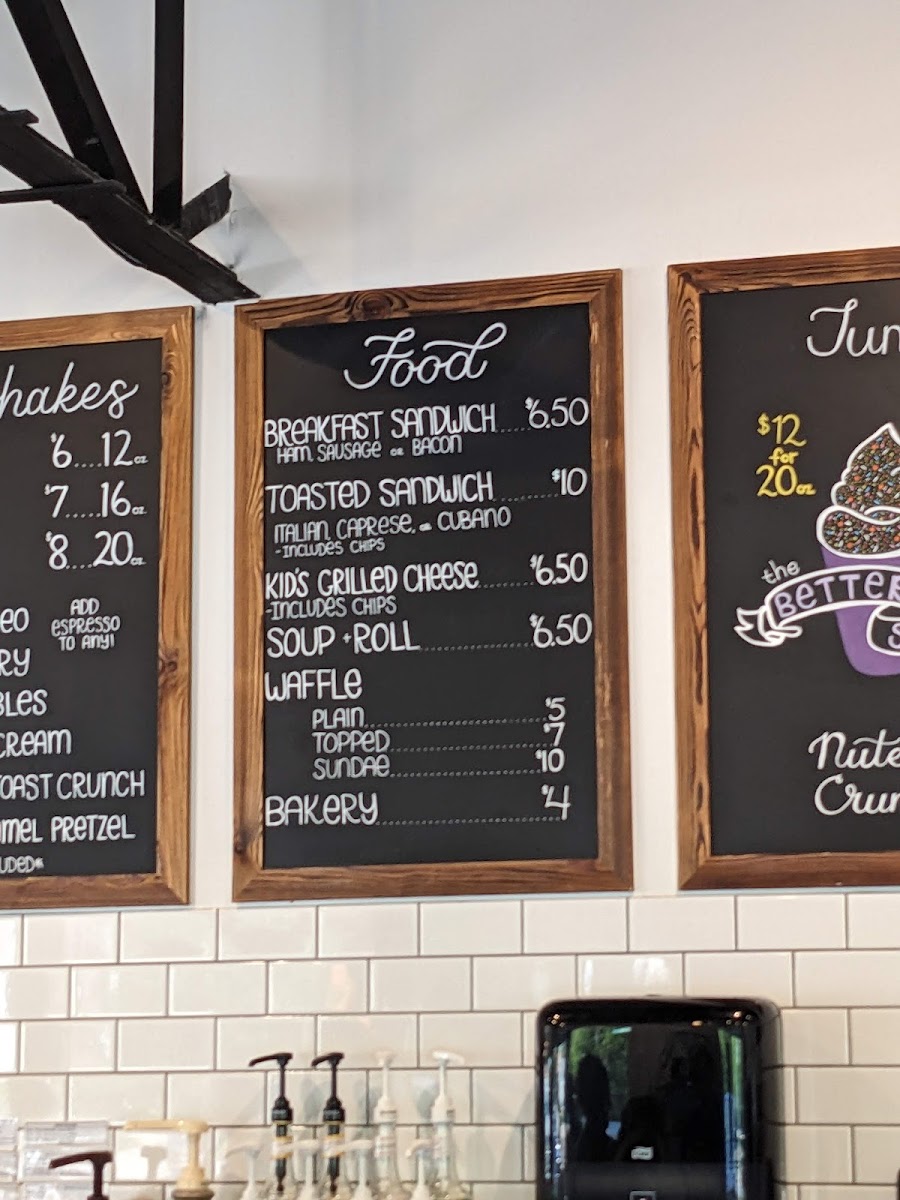 hakes
$6....12oz
$7.....16oz
$8....20oz
EO
ADD
ESPRESSO
TO ANY!
RY
BLES
CREAM
OAST CRUNCH
MEL PRETZEL
UDED*
Food
BREAKFAST SANDWICH.....$6.50
HAM, SAUSAGE OR BACON
TOASTED SANDWICH..........$10
ITALIAN, CAPRESE, OR CUBANO
-INCLUDES CHIPS
KID'S GRILLED CHEESE........$6.50
-INCLUDES CHIPS
SOUP + ROLL..................$6.50
WAFFLE
PLAIN..............................$5
TOPPED...........................$7
SUNDAE..........................$10
BAKERY.............................$4
Jun
$12
for
20oz
the
BETTER
S
Nute
Crun